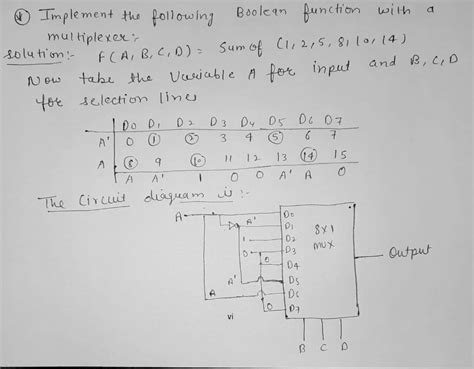 ① Implement the following Boolean function with a
multiplexer:-
Solution:- F(A, B, C, D) = Sum of (1, 2, 5, 8, 10, 14)
Now take the Variable A for input and B, C, D
for selection lines
D0 D1 D2 D3 D4 D5 D6 D7
A' 0 1 2 3 4 5 6 7
A 8 9 10 11 12 13 14 15
A A' 1 0 0 A' A 0
The Circuit diagram is :-
A
A' D0
D1
1 D2
0 D3
0 D4
A' D5
A D6
0 D7
8x1
MUX
Output
vi
B C D